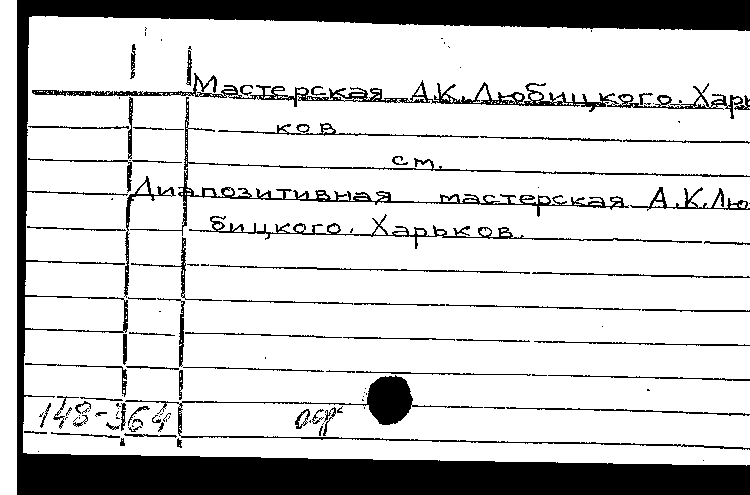 Мастерская А.К.Любицкого. Харь
ков
см.
Диапозитивная мастерская А.К.Лю
бицкого. Харьков.
148-364